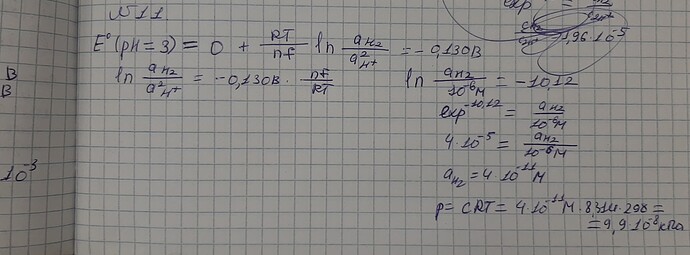 №11
E°(pH=3) = 0 + RT/nf ln aH2/a²H+ = -0,130В
ln aH2/a²H+ = -0,130В · nf/RT
ln aH2/10⁻⁶M = -10,12
exp⁻¹⁰,¹² = aH2/10⁻⁶M
4·10⁻⁵ = aH2/10⁻⁶M
aH2 = 4·10⁻¹¹M
p = CRT = 4·10⁻¹¹M·8,314·298 =
= 9,9·10⁻⁸кПа
exp
1,96·10⁻⁵
В
В
10⁻³